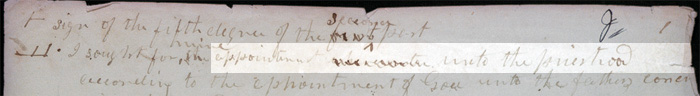 sign of the fifth degree of the second part
I sought for mine appointment unto the priesthood
according to the appointment of God unto the fathers